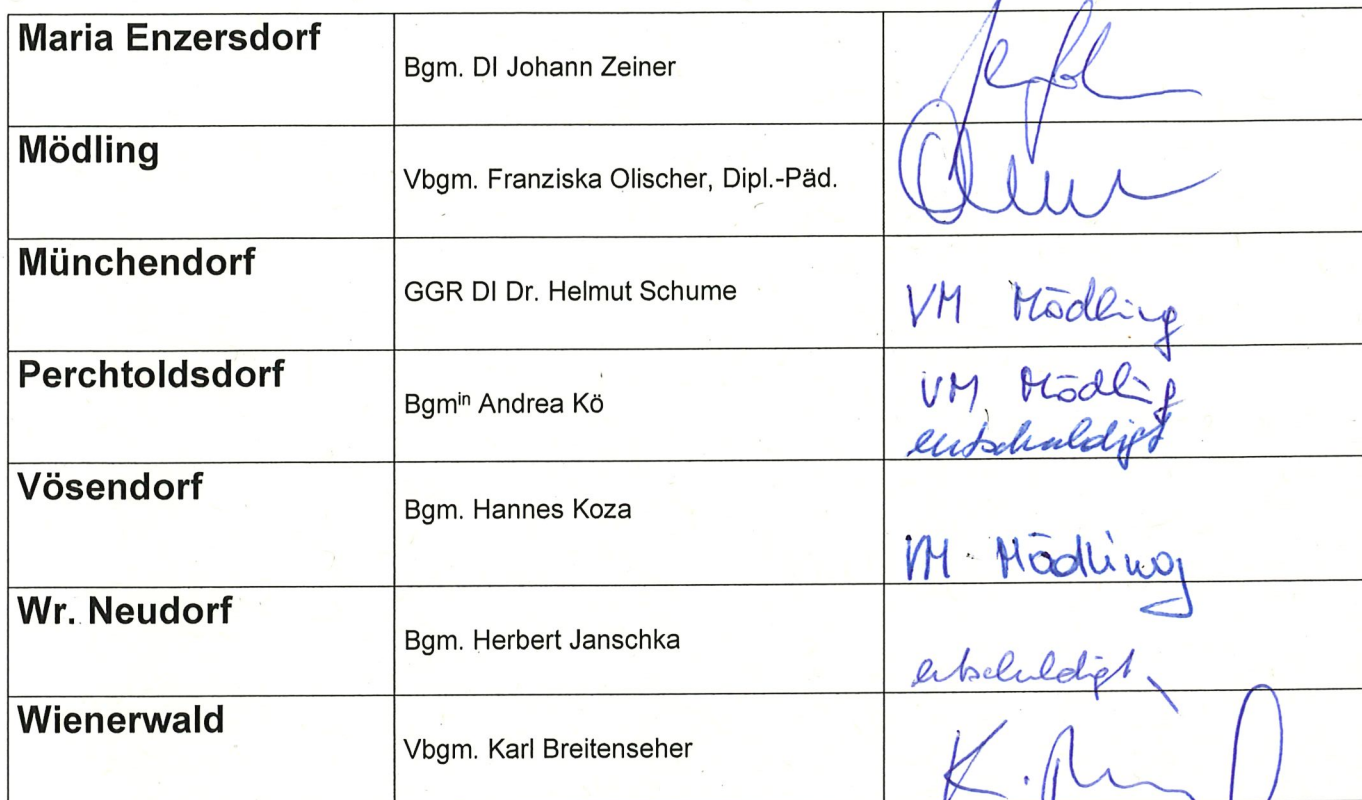 Maria Enzersdorf
Bgm. DI Johann Zeiner
Mödling
Vbgm. Franziska Olischer, Dipl.-Päd.
Münchendorf
GGR DI Dr. Helmut Schume
VM Mödling
Perchtoldsdorf
Bgmin Andrea Kö
VM Mödling
entschuldigt
Vösendorf
Bgm. Hannes Koza
VM Mödling
Wr. Neudorf
Bgm. Herbert Janschka
entschuldigt
Wienerwald
Vbgm. Karl Breitenseher